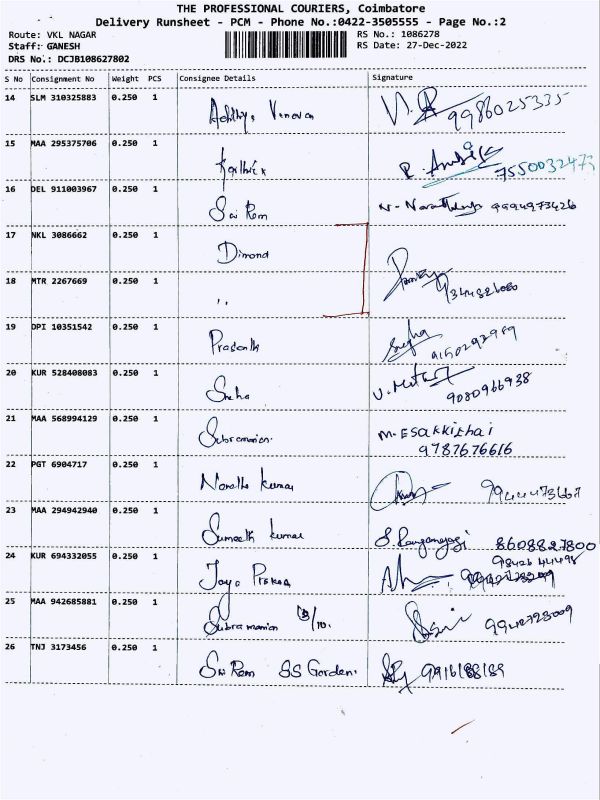 THE PROFESSIONAL COURIERS, Coimbatore
Delivery Runsheet - PCM - Phone No.:0422-3505555 - Page No.:2
Route: VKL NAGAR RS No.: 1086278
Staff: GANESH RS Date: 27-Dec-2022
DRS No.: DCJB108627802
S No Consignment No Weight PCS Consignee Details Signature
14 SLM 310325883 0.250 1 9986025335
15 MAA 295375706 0.250 1 Karthick 7550032473
16 DEL 911003967 0.250 1 Sai Ram 9994973426
17 NKL 3086662 0.250 1 Dimond
18 MTR 2267669 0.250 1 ,,
19 DPI 10351542 0.250 1 Prasanth
20 KUR 528408083 0.250 1 Sneha 9080966938
21 MAA 568994129 0.250 1 Subramanian M. ESakkithai
9787676616
22 PGT 6904717 0.250 1 Kumar
23 MAA 294942940 0.250 1 Sumeeth Kumar 8608827800
24 KUR 694332055 0.250 1 Jaya 98426 44498
25 MAA 942685881 0.250 1 Subramanian 9942723009
26 TNJ 3173456 0.250 1 Sri Ram SS Garden. 9916188189